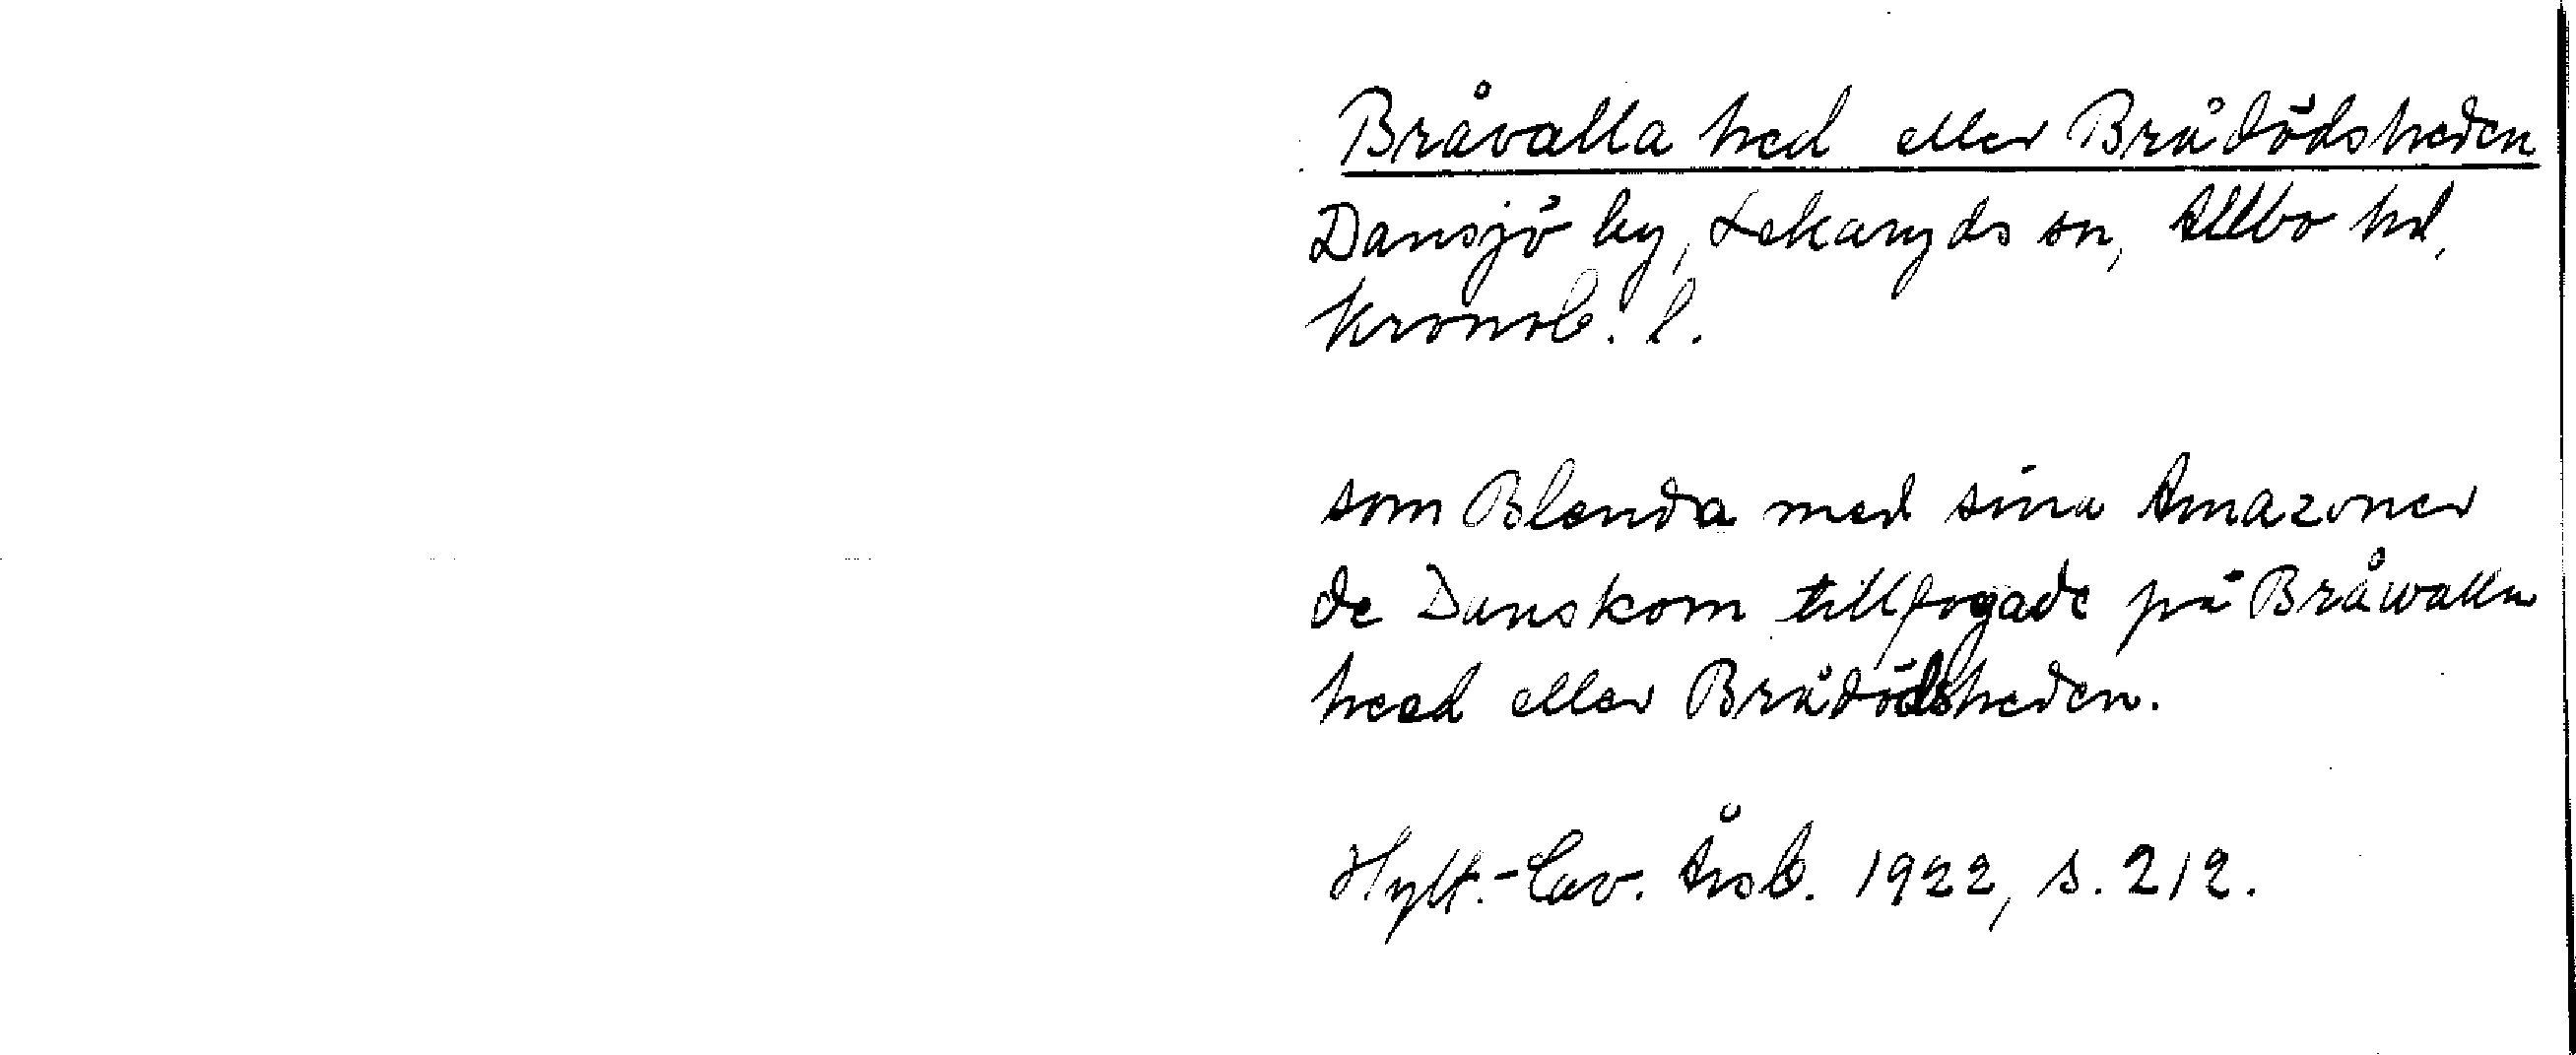 Bråvalla hed eller Brådödsheden
Dansjö by, Lekaryds sn, Allbo hd,
Kronob. l.
som Blenda med sina Amazoner
de Danskom tillfogade på Bråwalla
heed eller Brådödsheden.
Hylt.-Cav. Årsb. 1922, s. 212.